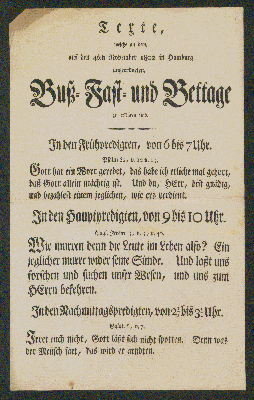 Texte,
welche an dem,
auf den 4ten November 1802 in Hamburg
angeordneten,
Buß- Fast- und Bettage
zu erklären sind.
In den Frühpredigten, von 6 bis 7 Uhr.
Psalm 62, v. 12. u. 13.
Gott hat ein Wort geredet, das habe ich etliche mal gehört,
daß Gott allein mächtig ist. Und du, HErr, bist gnädig,
und bezahlest einem jeglichen, wie ers verdient.
In den Hauptpredigten, von 9 bis 10 Uhr.
Klagl. Jerem. 3, v. 39. u. 40.
Wie murren denn die Leute im Leben also? Ein
jeglicher murre wider seine Sünde. Und laßt uns
forschen und suchen unser Wesen, und uns zum
HErrn bekehren.
In den Nachmittagspredigten, von 2½ bis 3½ Uhr.
Galat. 6, v. 7.
Irret euch nicht, Gott läßt sich nicht spotten. Denn was
der Mensch säet, das wird er ärndten.